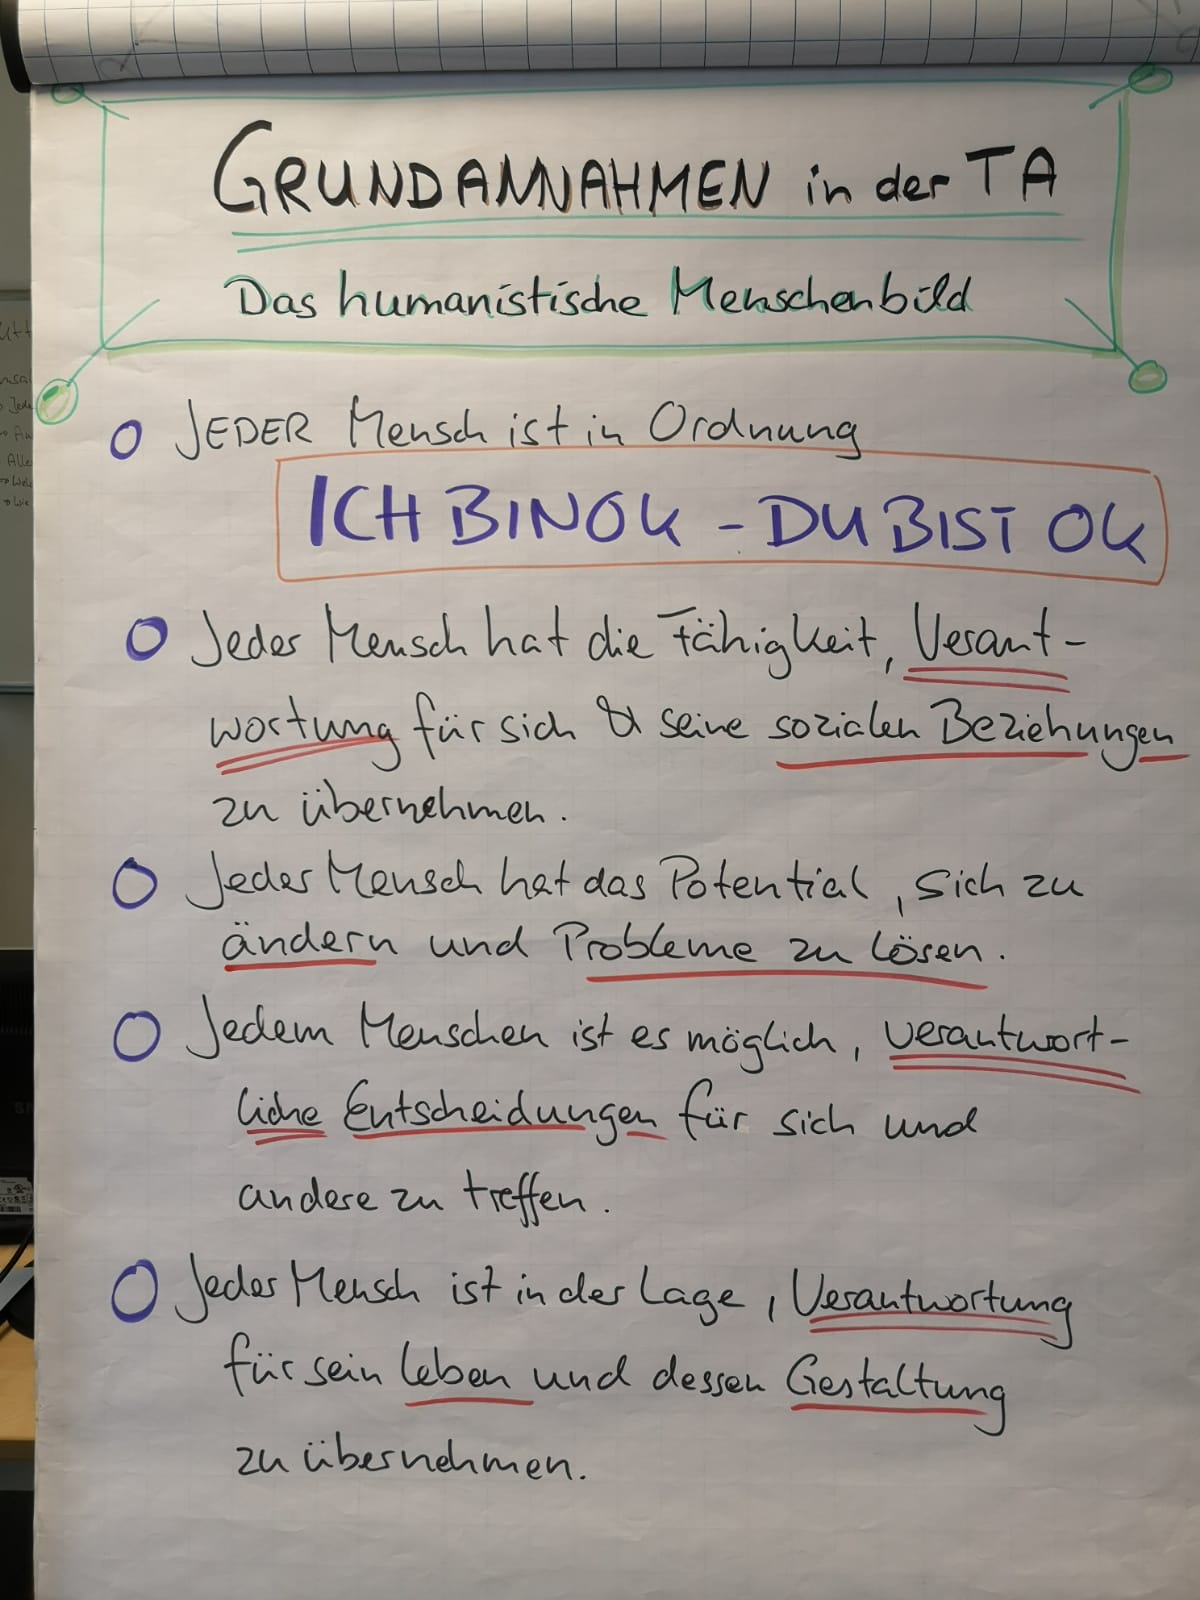 GRUNDANNAHMEN in der TA
Das humanistische Menschenbild
JEDER Mensch ist in Ordnung
ICH BIN OK - DU BIST OK
Jeder Mensch hat die Fähigkeit, Verant-
wortung für sich & seine sozialen Beziehungen
zu übernehmen.
Jeder Mensch hat das Potential, sich zu
ändern und Probleme zu lösen.
Jedem Menschen ist es möglich, verantwort-
liche Entscheidungen für sich und
andere zu treffen.
Jeder Mensch ist in der Lage, Verantwortung
für sein Leben und dessen Gestaltung
zu übernehmen.